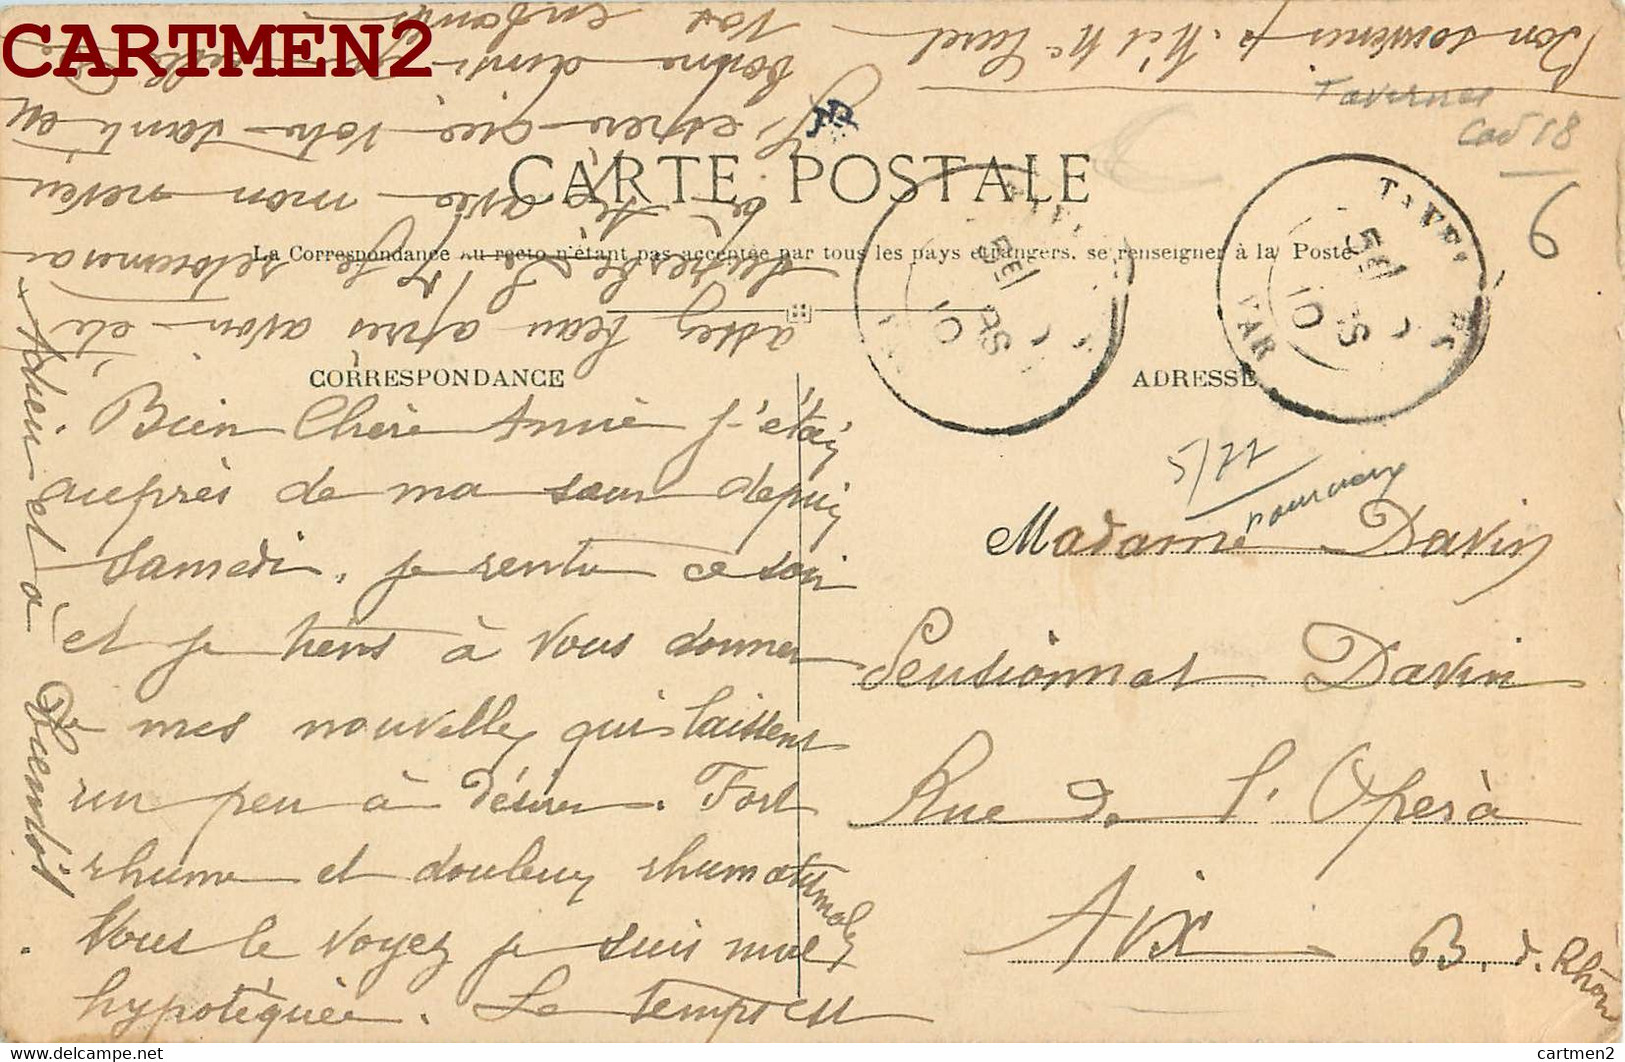 CARTMEN2
CARTE POSTALE
La Correspondance au recto n'étant pas acceptée par tous les pays étrangers, se renseigner à la Poste
CORRESPONDANCE
ADRESSE
Bien Chère Annie j'étais
auprès de ma sœur depuis
Samedi, je rentre ce soir
et je tiens à vous donner
de mes nouvelles qui laissent
un peu à désirer. Fort
rhume et douleurs rhumatismales
Vous le voyez je suis mal
hypotéquée. Le temps est
assez beau après avoir été
je retournerai
avec mon neveu
J'espère que votre santé est
bonne ainsi que celle de
vos enfants
Bon souvenir
Adieu et à Bientôt
Tavernes
Cad 18
9
5/77
TAVERNES
VAR
10
10
Madame Davin
Pensionnat Davin
Rue de l'Opéra
Aix B. d. Rhône
delcampe.net
cartmen2